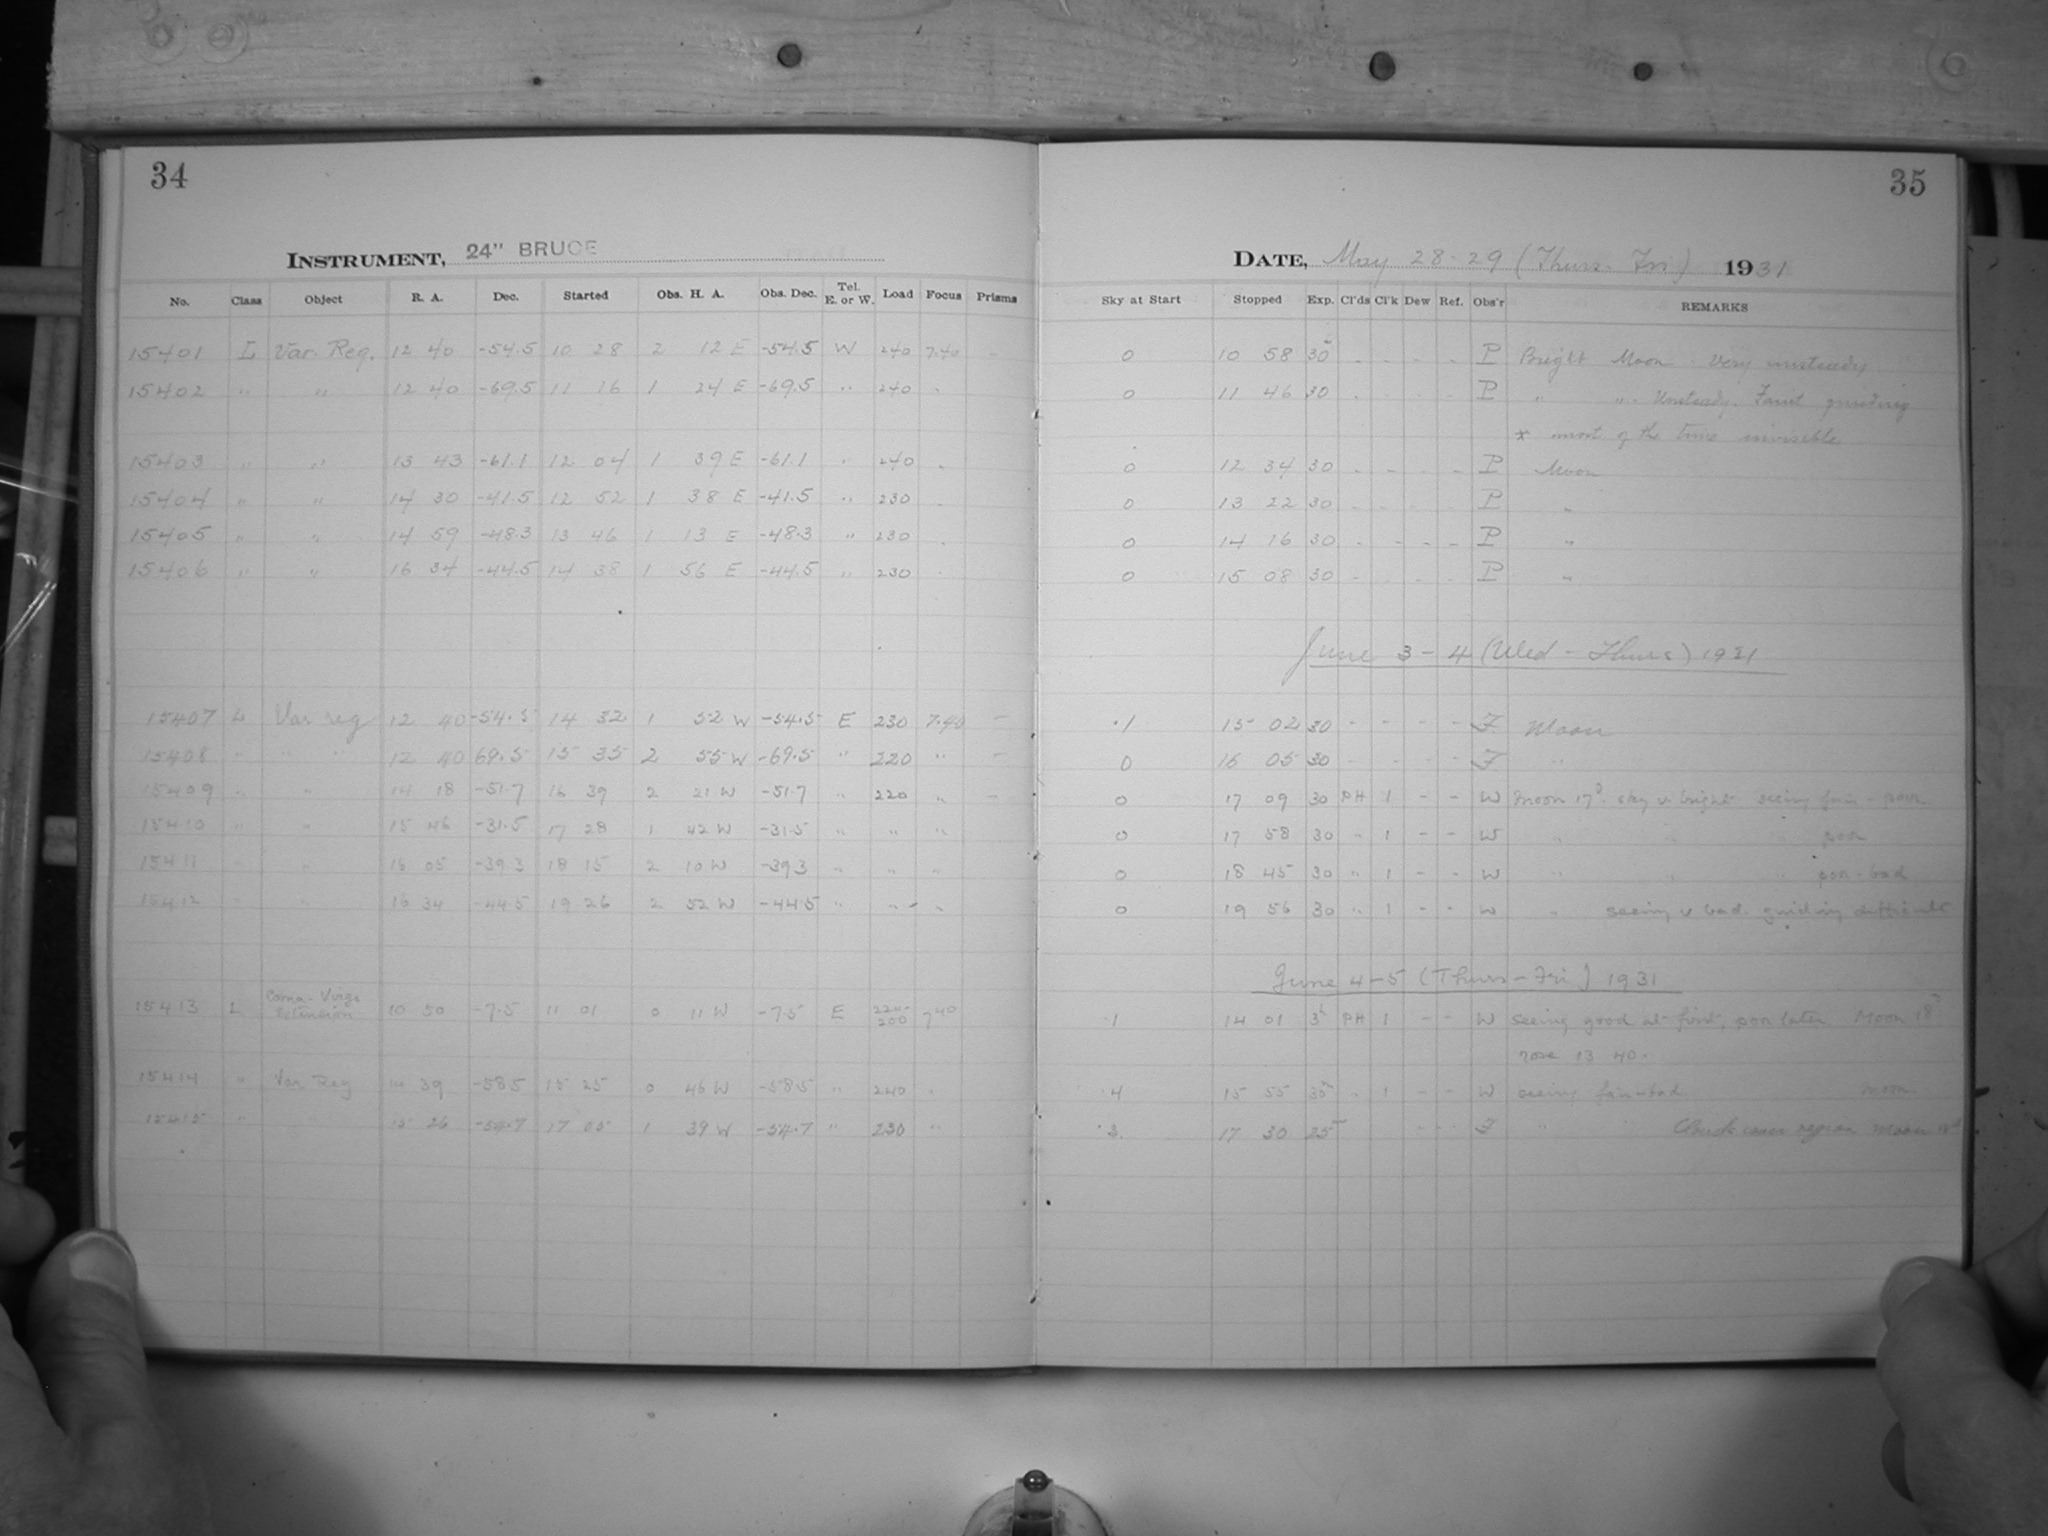 34
35
INSTRUMENT, 24" BRUCE
DATE, May 28-29 (Thurs. Fri) 1931
No. Class Object R. A. Dec. Started Obs. H. A. Obs. Dec. Tel. E. or W. Load Focus Prisms Sky at Start Stopped Exp. Cl'ds Cl'k Dew Ref. Obs'r REMARKS
15401 L Var. Reg. 12 40 -54.5 10 28 2 12 E -54.5 W 240 7.40 - 0 10 58 30 - - - - P Bright Moon very unsteady
15402 " " 12 40 -69.5 11 16 1 24 E -69.5 " 240 " 0 11 46 30 - - - - P " " Unsteady. Faint guiding
* most of the time invisible
15403 " " 13 43 -61.1 12 04 1 39 E -61.1 " 240 " 0 12 34 30 - - - - P Moon
15404 " " 14 30 -41.5 12 52 1 38 E -41.5 " 230 " 0 13 22 30 - - - - P "
15405 " " 14 59 -48.3 13 46 1 13 E -48.3 " 230 " 0 14 16 30 - - - - P "
15406 " " 16 34 -44.5 14 38 1 56 E -44.5 " 230 " 0 15 08 30 - - - - P "
June 3-4 (Wed - Thurs) 1931
15407 L Var reg 12 40 -54.5 14 32 1 52 W -54.5 E 230 7.40 - .1 15 02 30 - - - - F Moon
15408 " " " 12 40 69.5 15 35 2 55 W -69.5 " 220 " - 0 16 05 30 - - - - F "
15409 " " 14 18 -51.7 16 39 2 21 W -51.7 " 220 " - 0 17 09 30 PH 1 - - W Moon 17d. sky v bright seeing fair - poor
15410 " " 15 46 -31.5 17 28 1 42 W -31.5 " " " 0 17 58 30 " 1 - - W " " " poor
15411 " " 16 05 -39.3 18 15 2 10 W -39.3 " " " 0 18 45 30 " 1 - - W " " " poor-bad
15412 " " 16 34 -44.5 19 26 2 52 W -44.5 " " " 0 19 56 30 " 1 - - W " seeing v bad. guiding difficult
June 4-5 (Thurs-Fri) 1931
15413 L Coma-Virgo Extension 10 50 -7.5 11 01 0 11 W -7.5 E 220-200 7.40 .1 14 01 3h PH 1 - - W seeing good at first, poor later Moon 18d
rose 13 40.
15414 " Var Reg 14 39 -58.5 15 25 0 46 W -58.5 " 240 " .4 15 55 30m " 1 - - W seeing fair-bad Moon
15415 " " 15 26 -54.7 17 05 1 39 W -54.7 " 230 " .3 17 30 25m - - - F " " Clouds cover region moon